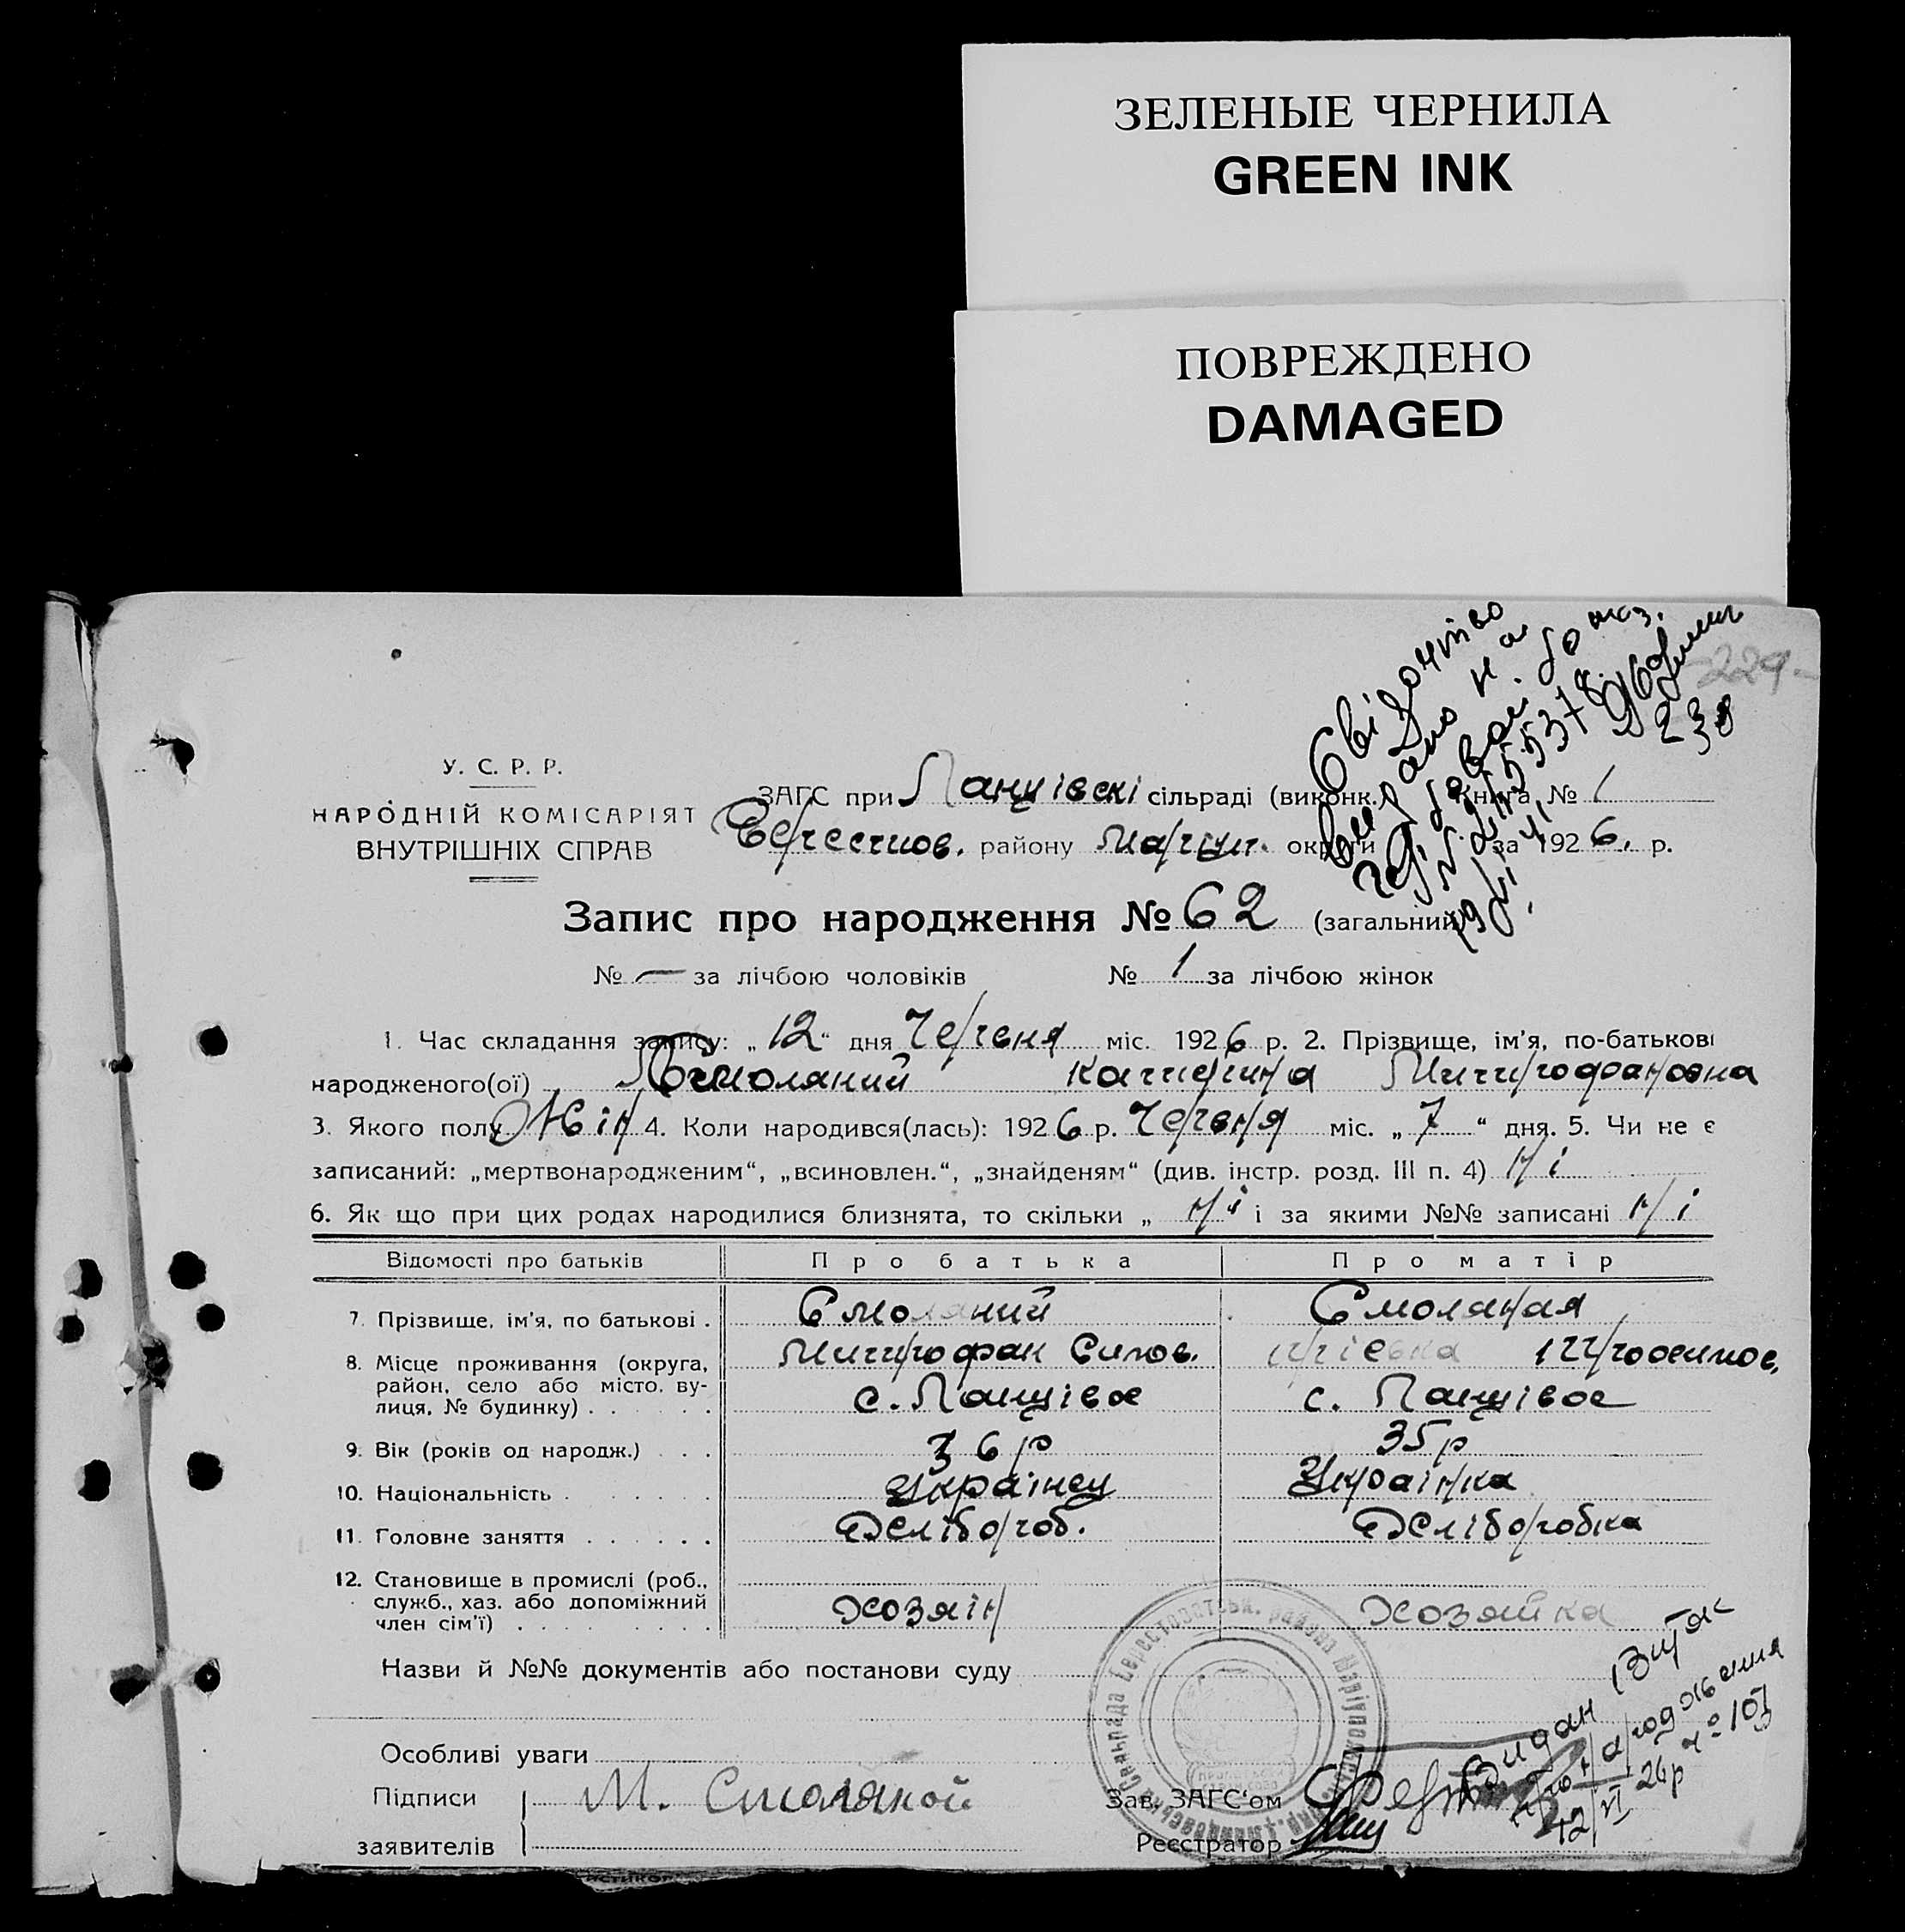 ЗЕЛЕНЫЕ ЧЕРНИЛА
GREEN INK
ПОВРЕЖДЕНО
DAMAGED
229
Свідоцтво
видано на
238
У. С. Р. Р.
НАРОДНІЙ КОМІСАРІЯТ
ВНУТРІШНІХ СПРАВ
ЗАГС при Панцівскі сільраді (виконк.) Книга № 1
району округи за 1926 р.
Запис про народження № 62 (загальний)
№ — за лічбою чоловіків № 1 за лічбою жінок
1. Час складання запису: „12“ дня Червня міс. 1926 р. 2. Прізвище, ім'я, по-батькові
народженого(ої) Смоляний Катерина Митрофановна
3. Якого полу Жін 4. Коли народився(лась): 1926 р. Червня міс. „7“ дня. 5. Чи не є
записаний: „мертвонародженим“, „всиновлен.“, „знайденям“ (див. інстр. розд. III п. 4) Ні
6. Як що при цих родах народилися близнята, то скільки „ Ні і за якими №№ записані Ні
Відомості про батьків Про батька Про матір
7. Прізвище, ім'я, по батькові . Смоляний Смоляная
Митрофан Силов.
8. Місце проживання (округа,
район, село або місто, ву-
лиця, № будинку) . . . . . . с. с.
9. Вік (років од народж.) . . . 36 р 35 р
10. Національність . . . . . . Українец Українка
11. Головне заняття . . . . . . Хлібороб. Хліборобка
12. Становище в промислі (роб.,
служб., хаз. або допоміжний
член сім'ї) . . . . . . . . Хозяін Хозяйка
Назви й №№ документів або постанови суду
Особливі уваги
Підписи М. Смоляной
заявителів
Зав. ЗАГС'ом
Реєстратор
Видан Витяг
про народження
12/VI 26р № 103